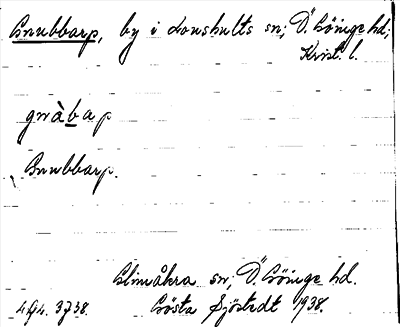 Gnubbarp, by i Loushults sn; Ö. Göinge hd;
Krist. l.
gnàbap
Gnubbarp.
Glimåkra sn; Ö. Göinge hd.
Gösta Sjöstedt 1938.